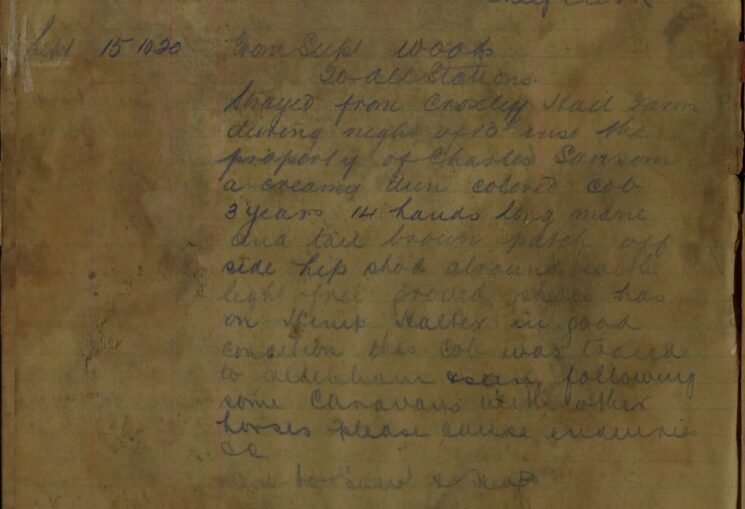 Sept 15 10.20 From Supt Wood
To all Stations
Strayed from Croxley Hall Farm
during night of 13th inst the
property of Charles Sansom
a creamy dun colored cob
3 years 14 hands long mane
and tail brown patch off
side hip shod alround with
light free ground shoes has
on Hemp Halter in good
condition this cob was traced
to aldenham & seen following
some Caravans with other
horses please cause enquirie
&c